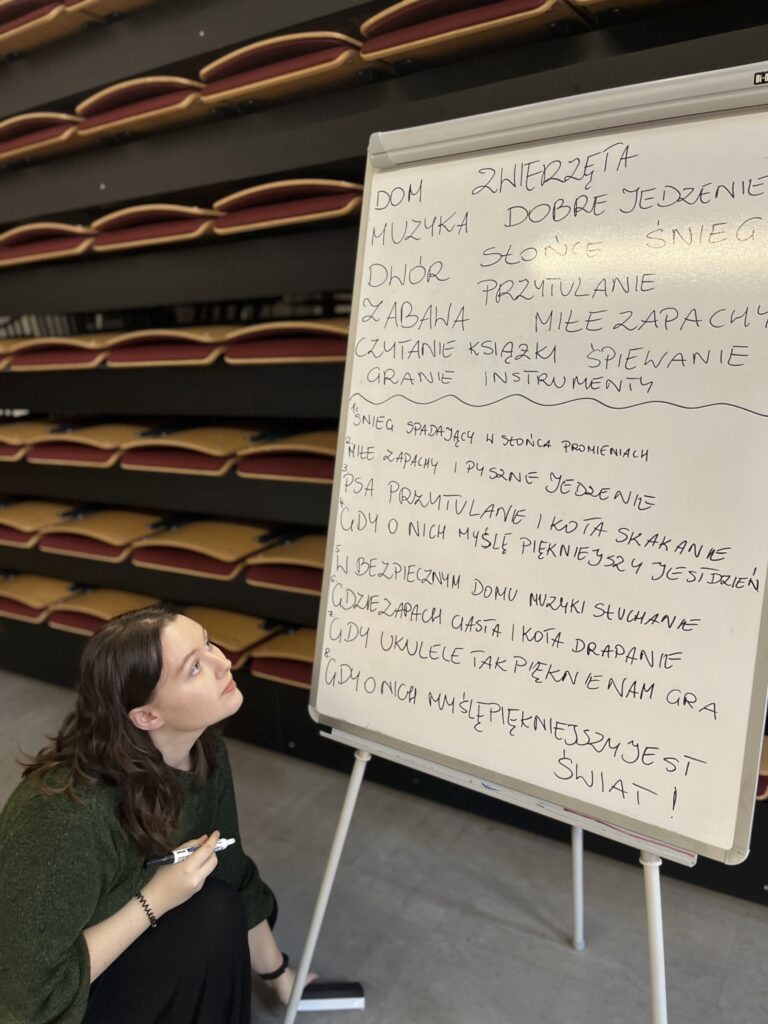 DOM ZWIERZĘTA
MUZYKA DOBRE JEDZENIE
DWÓR SŁOŃCE ŚNIEG
PRZYTULANIE
ZABAWA MIŁE ZAPACHY
CZYTANIE KSIĄŻKI ŚPIEWANIE
GRANIE INSTRUMENTY
1. ŚNIEG SPADAJĄCY W SŁOŃCA PROMIENIACH
2. MIŁE ZAPACHY I PYSZNE JEDZENIE
3. PSA PRZYTULANIE I KOTA SKAKANIE
4. GDY O NICH MYŚLĘ PIĘKNIEJSZY JEST DZIEŃ
5. W BEZPIECZNYM DOMU MUZYKI SŁUCHANIE
6. GDZIE ZAPACH CIASTA I KOTA DRAPANIE
7. GDY UKULELE TAK PIĘKNIE NAM GRA
8. GDY O NICH MYŚLĘ PIĘKNIEJSZY JEST
ŚWIAT!